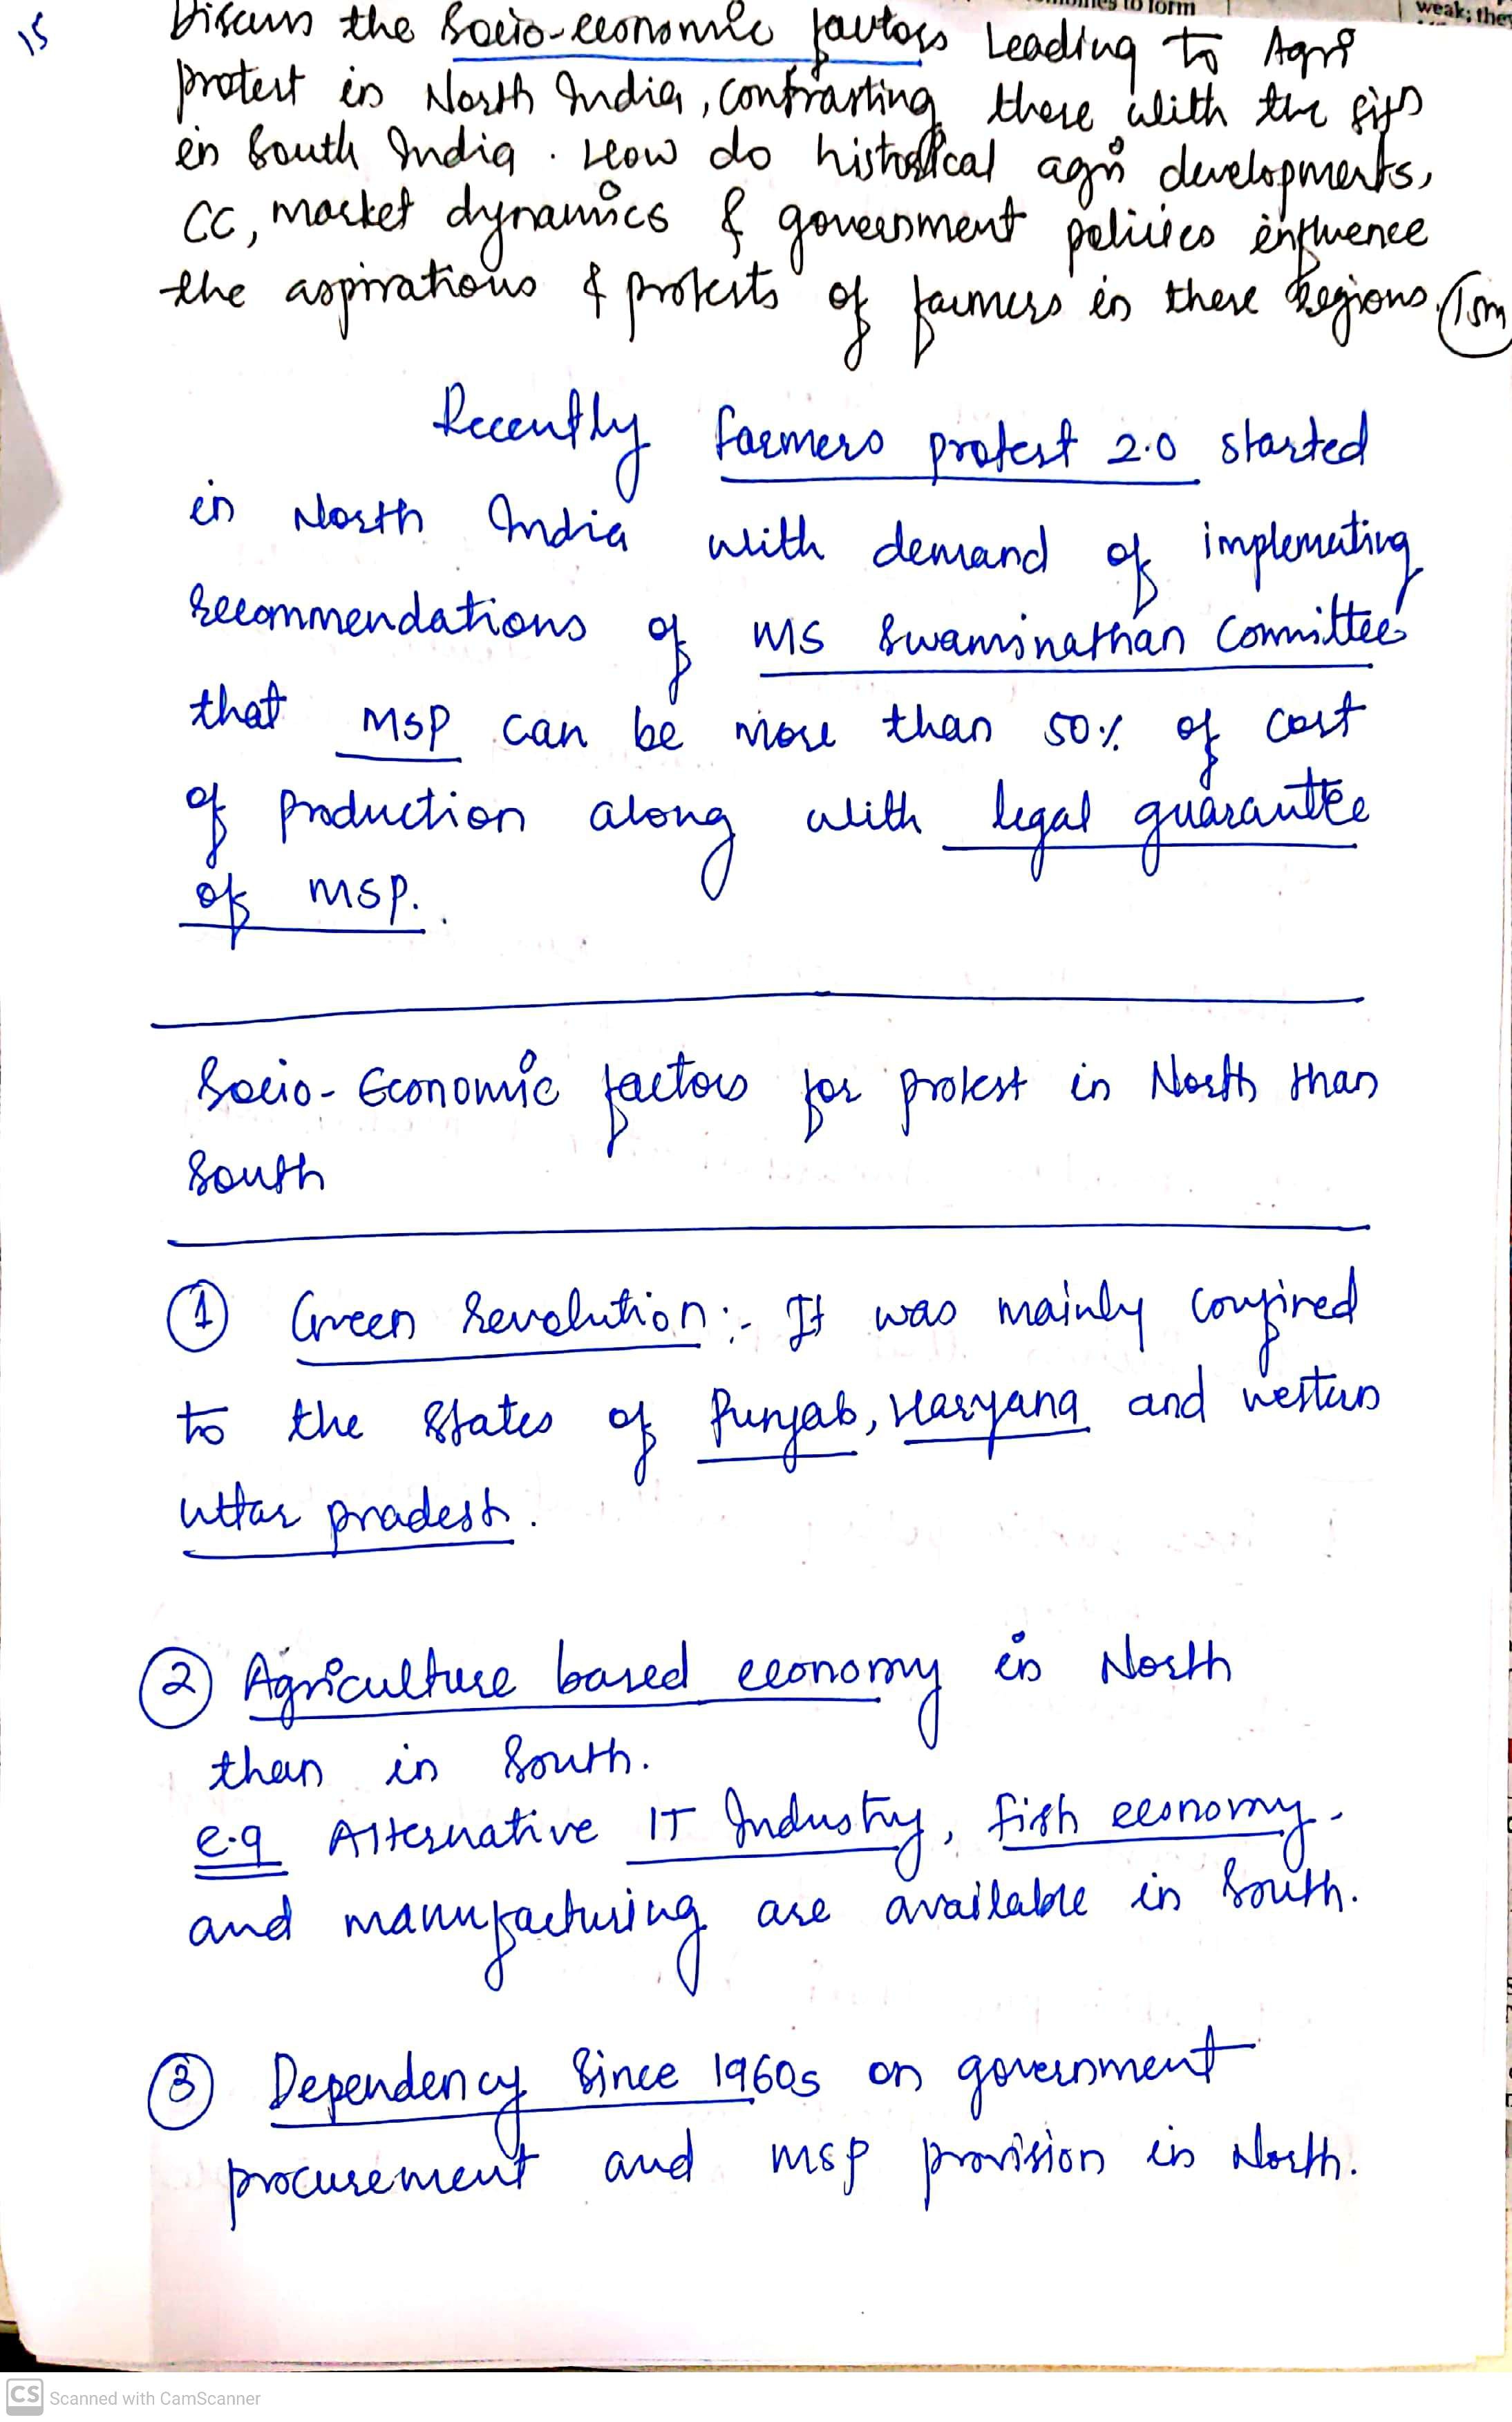 15
Discuss the Socio-economic factors leading to Agri
protest in North India, contrasting these with the sit^n
in South India. How do historical agri developments,
CC, market dynamics & government policies influence
the aspirations & protests of farmers in these Regions. 15m
to form
weak; they
Recently farmers protest 2.0 started
in North India with demand of implementing
recommendations of MS Swaminathan Committee
that MSP can be more than 50% of cost
of production along with legal guarantee
of MSP.
Socio-Economic factors for protest in North than
South
1 Green Revolution:- It was mainly confined
to the States of Punjab, Haryana and western
Uttar pradesh.
2 Agriculture based economy in North
than in South.
e.g Alternative IT Industry, fish economy
and manufacturing are available in South.
3 Dependency Since 1960s on government
procurement and MSP provision in North.
CS Scanned with CamScanner